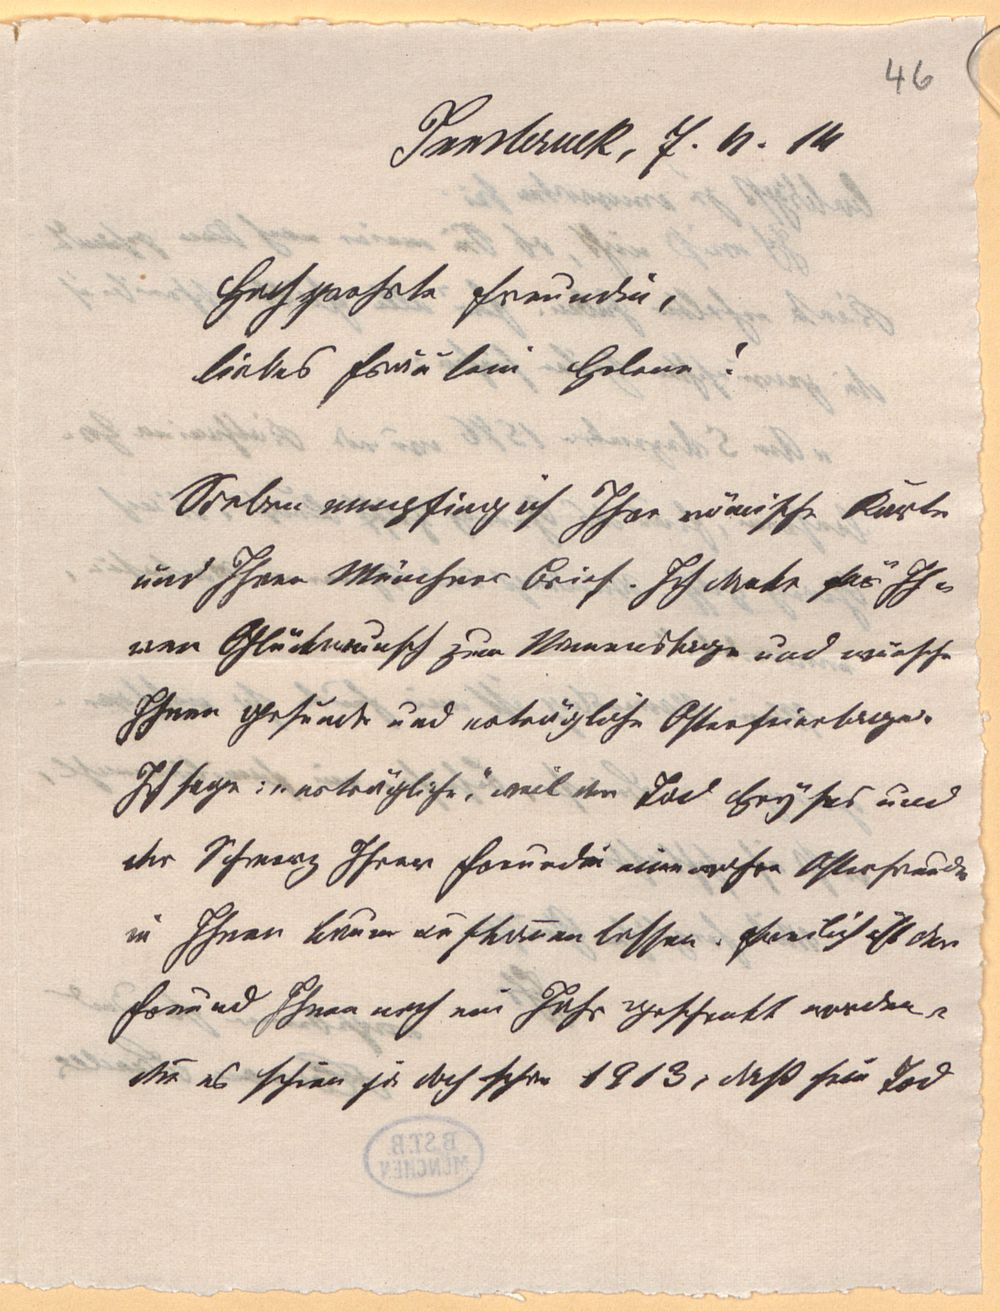 46
Innsbruck, 7. 4. 14
Hochgeehrte Freundin,
liebes Fräulein Helene!
Soeben empfing ich Ihre römische Karte
und Ihren Münchner Brief. Ich danke für Ih=
ren Glückwunsch zum Namenstage und wünsche
Ihnen gesunde und erträgliche Osterfeiertage.
Ich sage: „erträgliche“, weil der Tod Heyses und
der Schmerz Ihrer Freundin eine wahre Osterfreude
in Ihnen kaum aufkommen lassen. Freilich ist der
Freund Ihnen noch ein Jahr geschenkt worden,
denn es schien ja doch schon 1913, daß sein Tod
B.ST.B.
MÜNCHEN